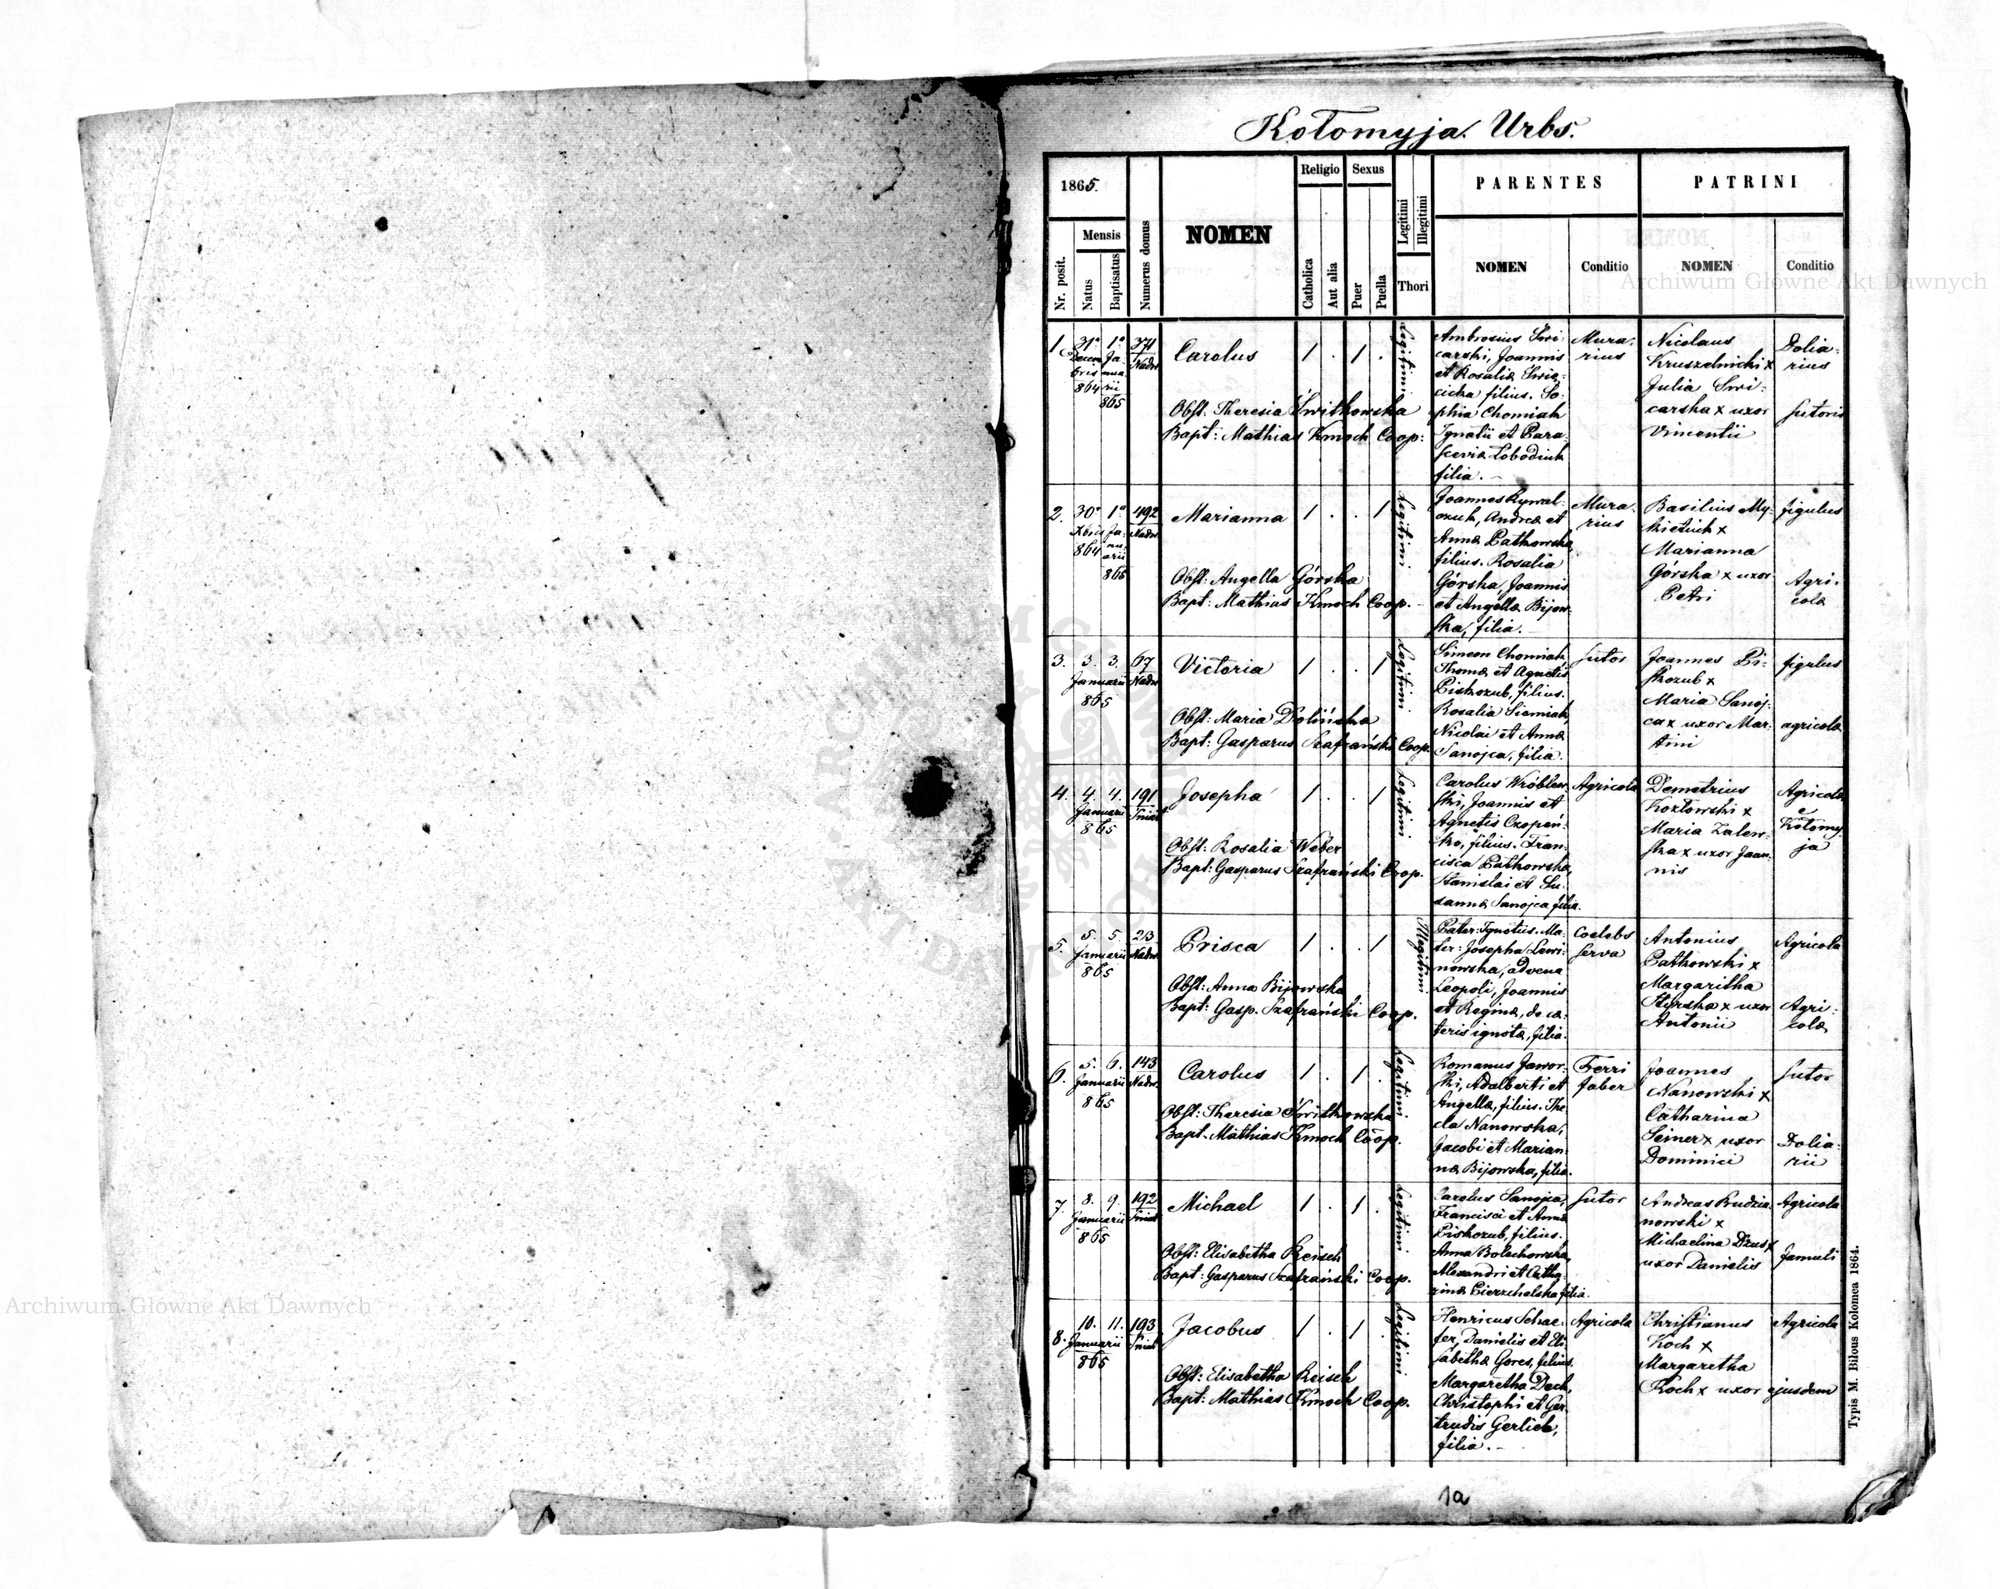 Kołomyja Urbs.
1865.
Nr. posit.
Mensis
Natus
Baptisatus
Numerus domus
NOMEN
Religio
Catholica
Aut alia
Sexus
Puer
Puella
Legitimi
Illegitimi
Thori
PARENTES
NOMEN
Conditio
PATRINI
NOMEN
Conditio
1.
31a
Decem
bris
864
1a
Ja-
nua
rii
865
371
Nadw.
Carolus
1 . 1 .
Obst: Theresia Świtkowska
Bapt: Mathias Kmoch Coop:
Legitimi
Ambrosius Swi-
carski, Joannis
et Rosaliæ Swię-
cicka filius. So-
phia Chomiak
Ignatii et Para-
scevia Lobodiuk
filia.
Mura-
rius
Nicolaus
Kruszelnicki x
Julia Swi-
carska x uxor
Vincentii
Dolia-
rius
sutoris
2.
30a
Xbris
864
1a
Ja-
nu-
arii
865
492
Nadw.
Marianna
1 . . 1
Obst: Angella Górska
Bapt: Mathias Kmoch Coop.
Legitimi
Joannes Rywal-
czuk, Andreæ et
Annæ Patkowska,
filius. Rosalia
Górska, Joannis
et Angellæ Bijow-
ska, filia.
Mura-
rius
Basilius My-
kietiuk x
Marianna
Górska x uxor
Petri
figulus
Agri-
colæ
3.
3. 3.
Januarii
865
67
Nadw.
Victoria
1 . . 1
Obst: Maria Dolińska
Bapt: Gasparus Szafrański Coop.
Legitimi
Simeon Chomiak
Thomæ et Agnetis
Piskozub, filius.
Rosalia Siemiak
Nicolai et Annæ
Sanojca, filia.
sutor
Joannes Pi-
skozub x
Maria Sanoj-
ca x uxor Mar-
tini
figulus
agricolæ
4.
4. 4.
Januarii
865
191
Sniat
Josepha
1 . . 1
Obst: Rosalia Weber
Bapt: Gasparus Szafrański Coop.
Legitimi
Carolus Wróblew-
ski, Joannis et
Agnetis Czopeń-
ko, filius. Fran-
cisca Patkowska,
Stanislai et Su-
sannæ Sanojca filia.
Agricola
Demetrius
Kozłowski x
Maria Zalew-
ska x uxor Joan-
nis
Agricolæ
e
Kołomy-
ja
5.
5. 5.
Januarii
865
23
Nadw.
Prisca
1 . . 1
Obst: Anna Bijowska
Bapt: Gasp. Szafrański Coop.
Illegitimi
Pater: Ignotus. Ma-
ter: Josepha Lewi-
nowska, advena
Leopoli, Joannis
et Reginæ, de cæ-
teris ignotæ, filia.
Coelebs
serva
Antonius
Patkowski x
Margaritha
x uxor
Antonii
Agricola
Agri-
colæ
6.
5. 6.
Januarii
865
143
Nadw.
Carolus
1 . 1 .
Obst: Theresia Świtkowska
Bapt: Mathias Kmoch Coop.
Legitimi
Romanus Jawor-
ski, Adalberti et
Angellæ, filius. The-
cla Nanowska,
Jacobi et Marian-
næ Bijowska, filia.
Ferri
faber
Joannes
Nanowski x
Catharina
Seiner x uxor
Dominici
sutor
Dolia-
rii
7.
8. 9.
Januarii
865
192
Sniat
Michael
1 . 1 .
Obst: Elisabetha Reisch
Bapt: Gasparus Szafrański Coop.
Legitimi
Carolus Sanojca,
Francisci et Annæ
Piskozub, filius.
Anna Bolechowska
Alexandri et Catha-
rinæ Pierzchalska filia.
sutor
Andreas Rudzia-
nowski x
Michaelina Dzus x
uxor Danielis
Agricola
famuli
8.
10. 11.
Januarii
865
193
Sniat
Jacobus
1 . 1 .
Obst: Elisabetha Reisch
Bapt: Mathias Kmoch Coop.
Legitimi
Henricus Schae-
fer, Danielis et Eli-
sabethæ Gores, filius.
Margaretha Dech,
Christophi et Ger-
trudis Gerlich,
filia.
Agricola
Christianus
Koch x
Margaretha
Koch x uxor ejusdem
Agricola
Typis M. Bilous Kolomea 1864.
1a
Archiwum Główne Akt Dawnych
Archiwum Główne Akt Dawnych
ARCHIWUM GŁÓWNE AKT DAWNYCH